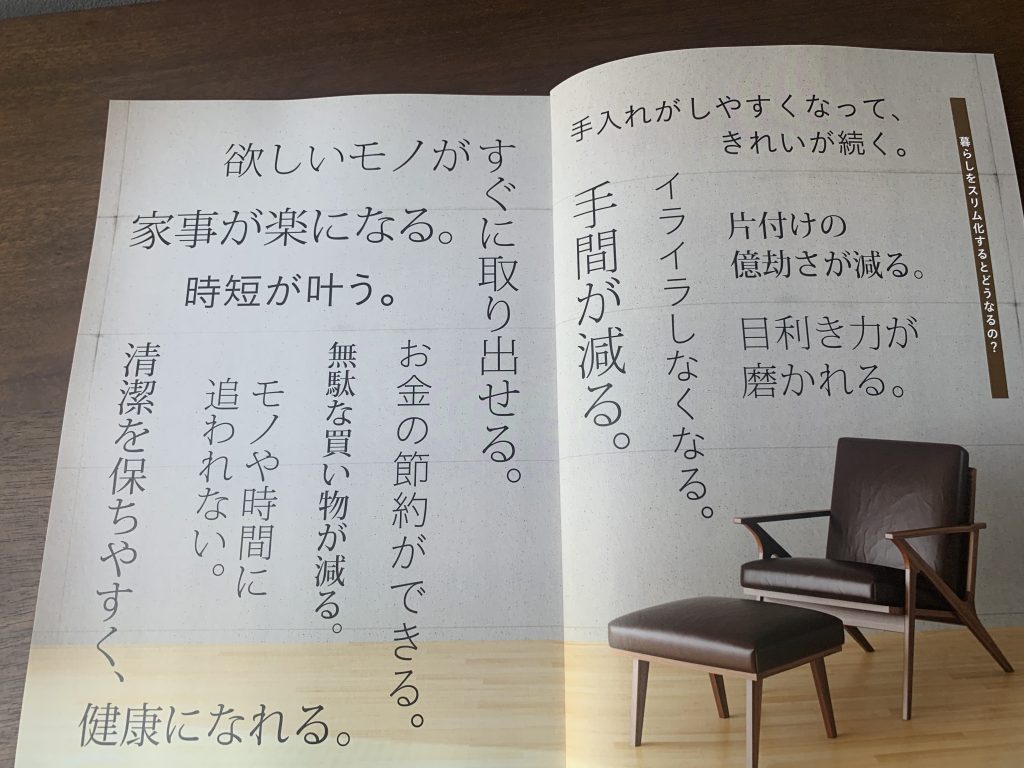 暮らしをスリム化するとどうなるの？
手入れがしやすくなって、
きれいが続く。
片付けの
億劫さが減る。
目利き力が
磨かれる。
イライラしなくなる。
手間が減る。
欲しいモノが
すぐに取り出せる。
家事が楽になる。
時短が叶う。
お金の節約ができる。
無駄な買い物が減る。
モノや時間に
追われない。
清潔を保ちやすく、
健康になれる。